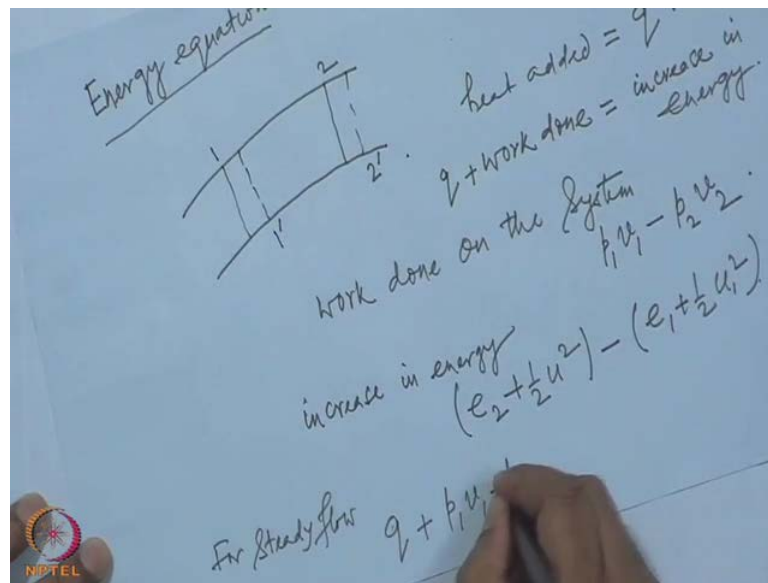 Energy equation
1
2
1'
2'
heat added = q.
q + work done = increase in
energy.
work done on the system
p₁v₁ - p₂v₂.
increase in energy
(e₂ + ½ u²) - (e₁ + ½ u₁²)
For steady flow q + p₁v₁ -
NPTEL